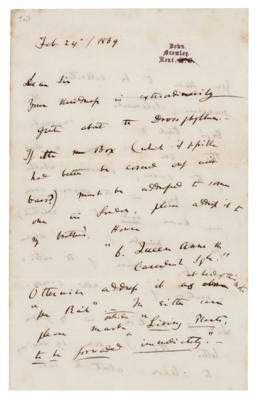 Feb 24th/1869
Down.
Bromley.
Kent.
Dear Sir
Your kindness is extraordinarily
great about the Drosophyllum.
If the new Box (which if possible
had better be covered only with
bars?) must be addressed to some
one in London, please address it to
my brother's House
"6. Queen Anne St
Cavendish Sqre."
Otherwise address it as above
"per Rail" In either case
please mark "Living Plants,
to be forwarded immediately."—